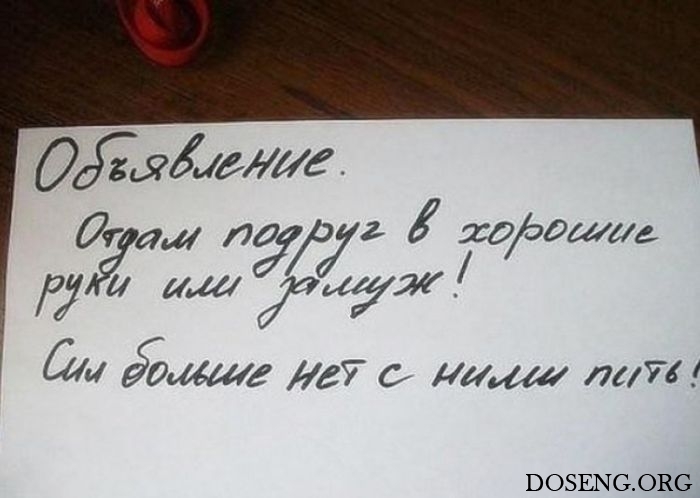 Объявление.
Отдам подруг в хорошие
руки или замуж!
Сил больше нет с ними пить!
DOSENG.ORG